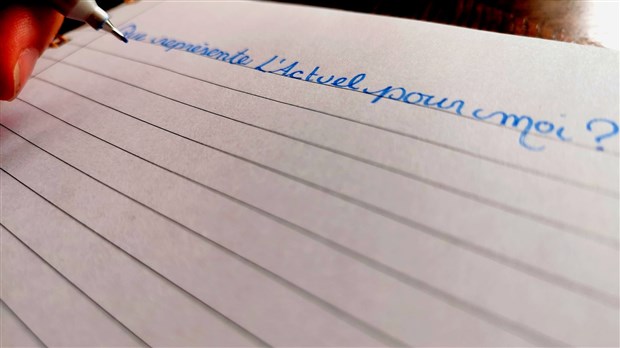 Que représente L'Actuel pour moi ?